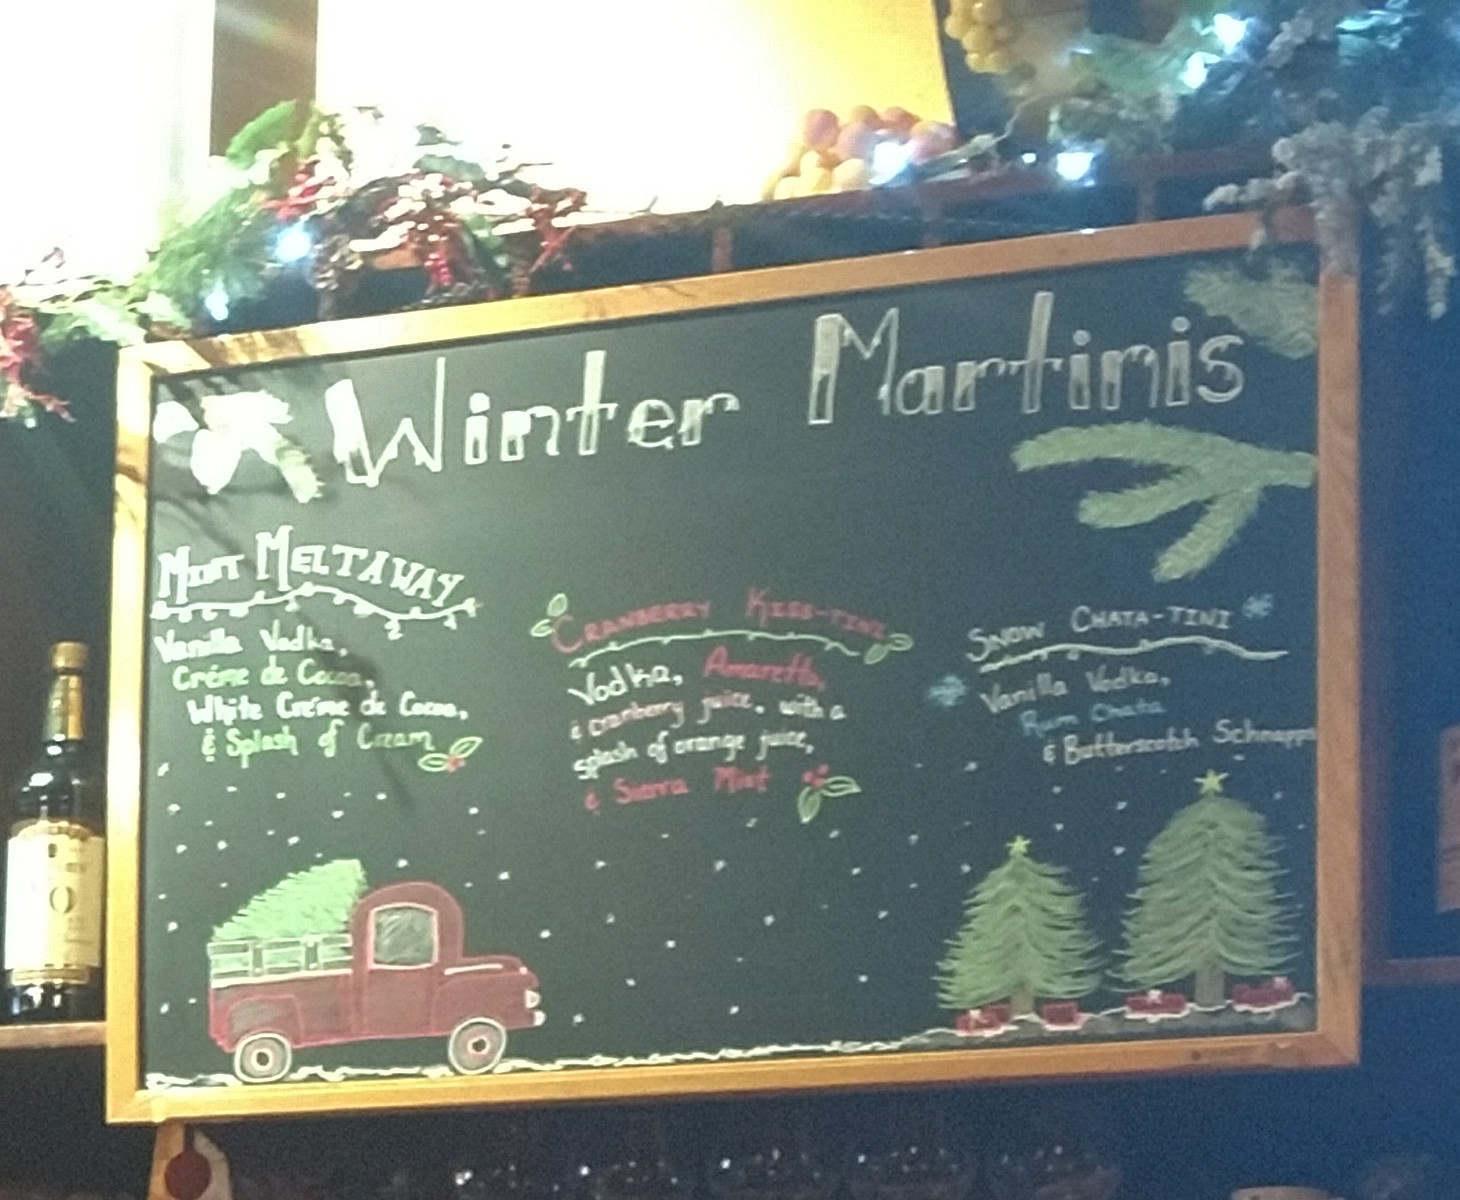 Winter Martinis
MINT MELTAWAY
Vanilla Vodka,
Créme de Cocoa,
White Créme de Cocoa,
& Splash of Cream
CRANBERRY KISS-TINI
Vodka, Amaretto,
& cranberry juice. with a
splash of orange juice,
& Sierra Mist
SNOW CHATA-TINI
Vanilla Vodka,
Rum Chata
& Butterscotch Schnapps